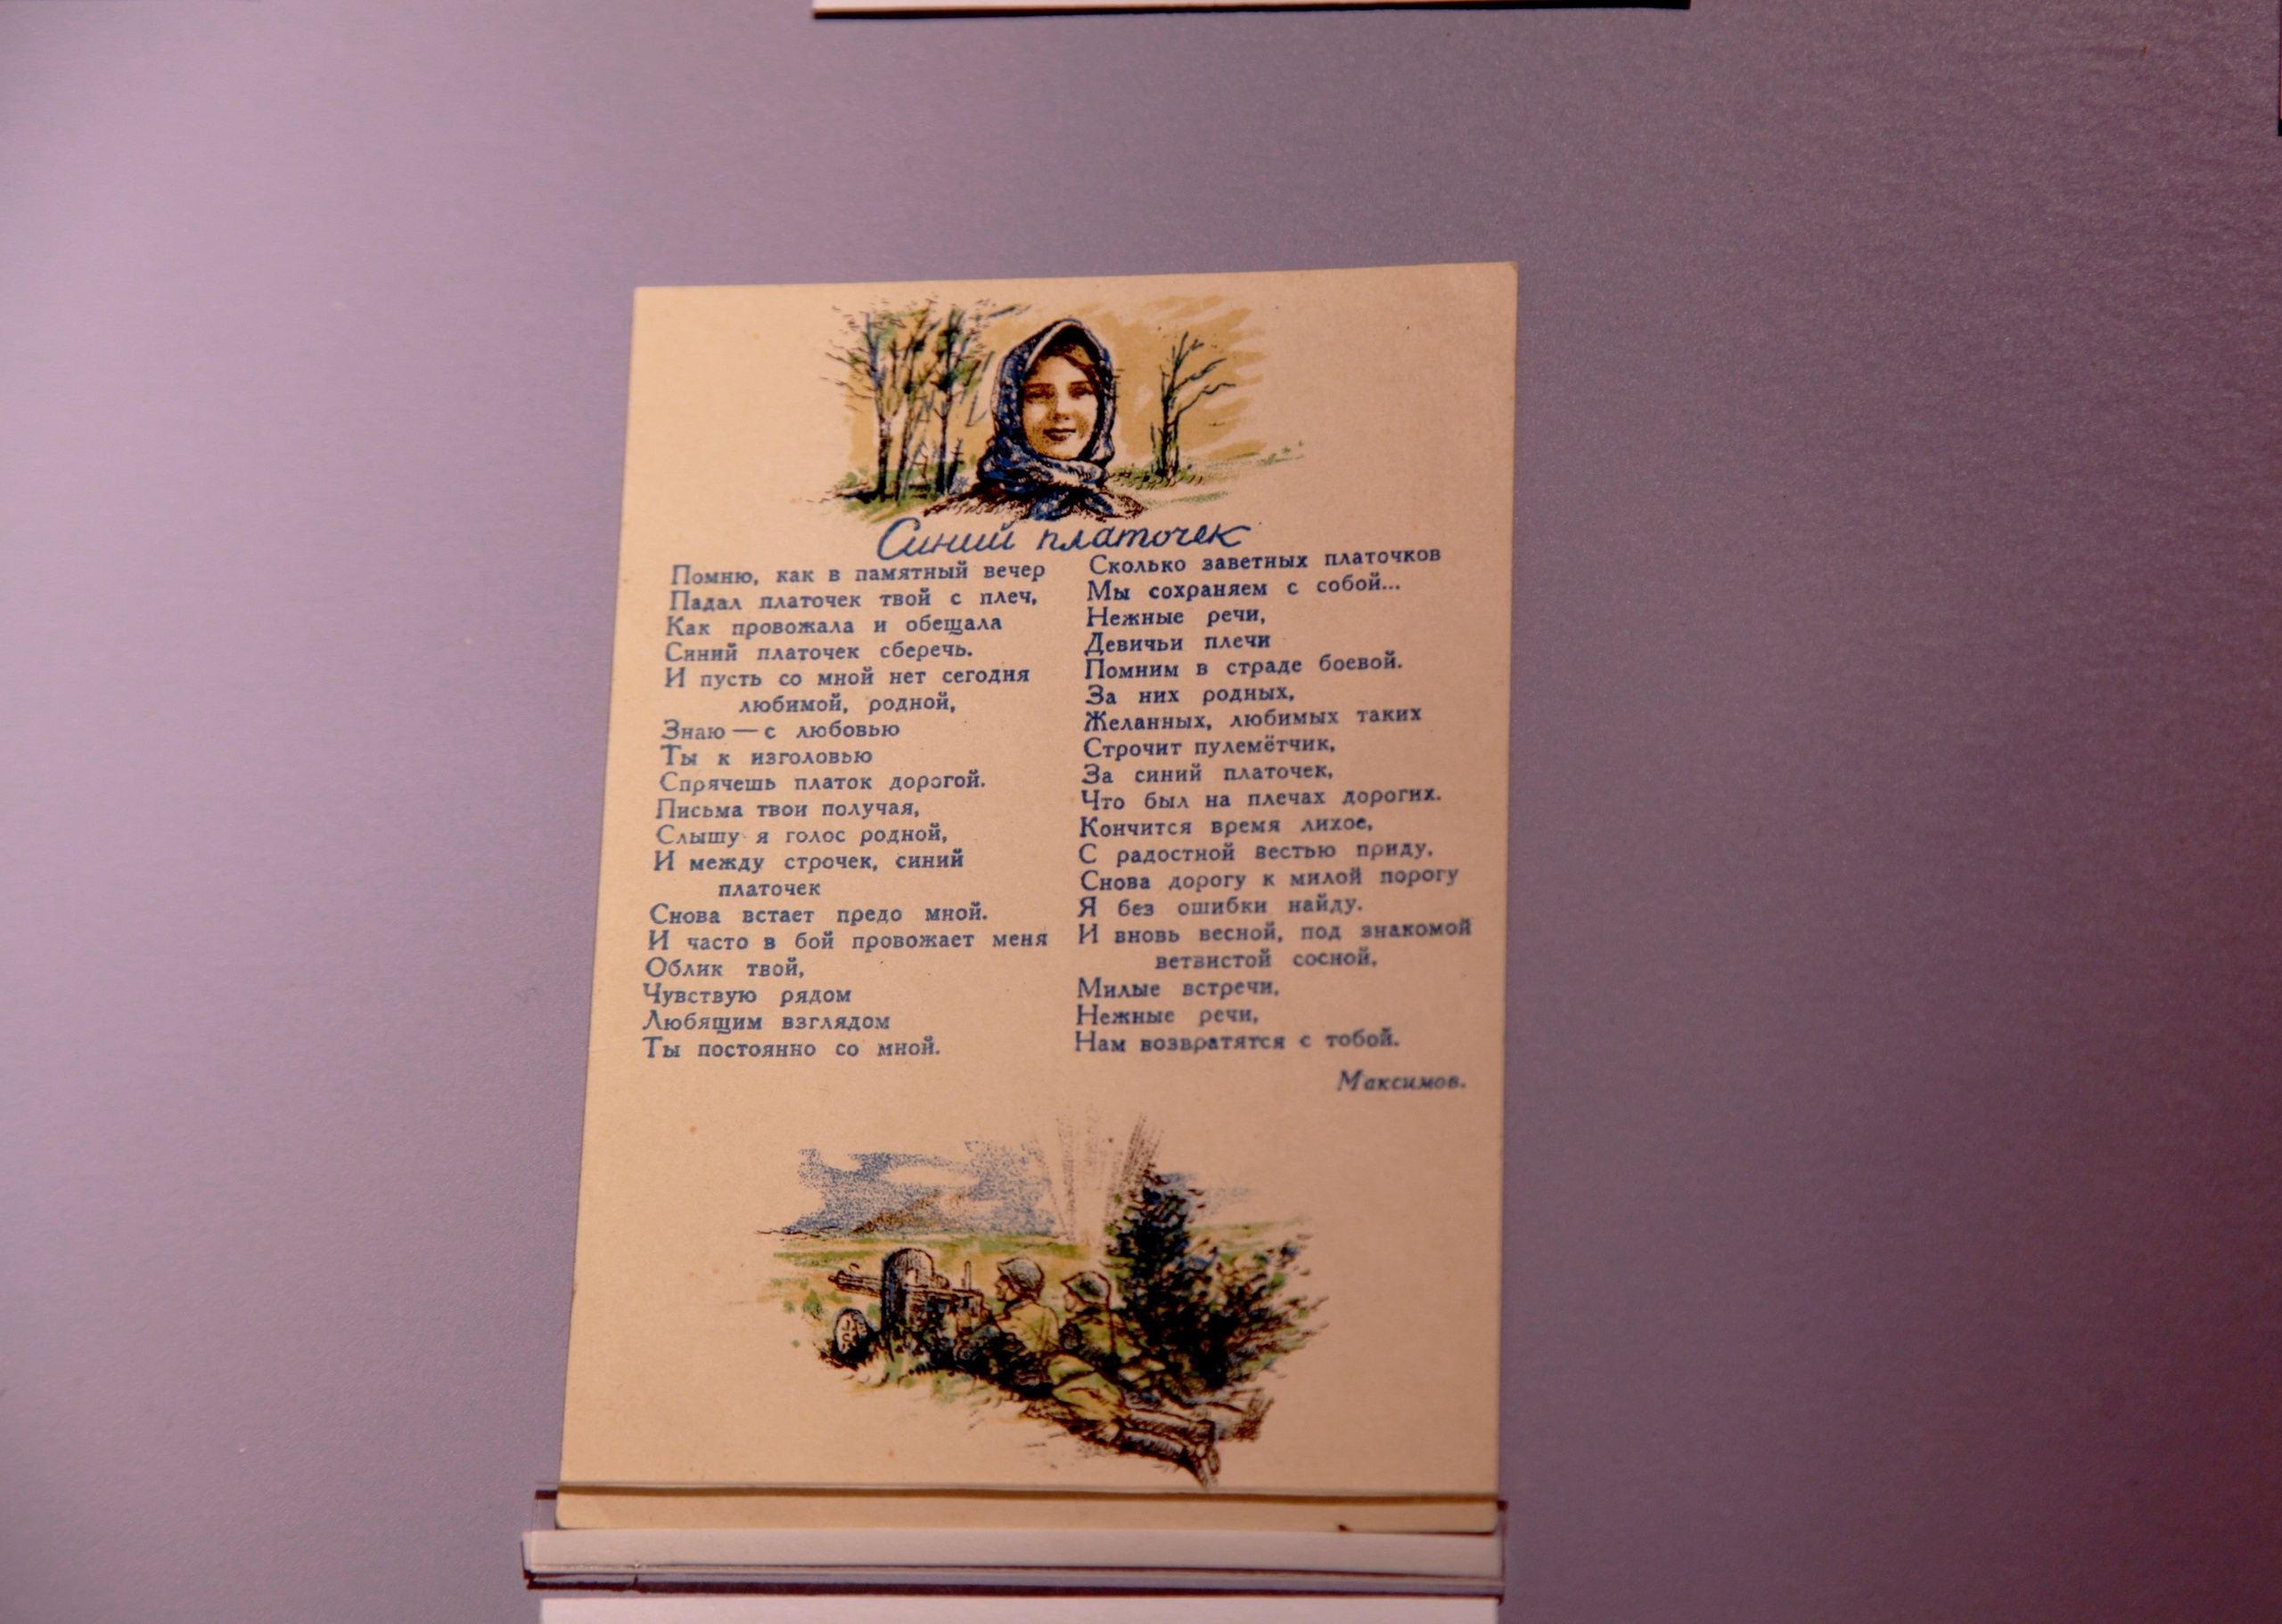 Синий платочек
Помню, как в памятный вечер
Падал платочек твой с плеч,
Как провожала и обещала
Синий платочек сберечь.
И пусть со мной нет сегодня
любимой, родной,
Знаю — с любовью
Ты к изголовью
Спрячешь платок дорогой.
Письма твои получая,
Слышу я голос родной,
И между строчек, синий
платочек
Снова встает предо мной.
И часто в бой провожает меня
Облик твой,
Чувствую рядом
Любящим взглядом
Ты постоянно со мной.
Сколько заветных платочков
Мы сохраняем с собой...
Нежные речи,
Девичьи плечи
Помним в страде боевой.
За них родных,
Желанных, любимых таких
Строчит пулемётчик,
За синий платочек,
Что был на плечах дорогих.
Кончится время лихое,
С радостной вестью приду,
Снова дорогу к милой порогу
Я без ошибки найду.
И вновь весной, под знакомой
ветвистой сосной,
Милые встречи,
Нежные речи,
Нам возвратятся с тобой.
Максимов.